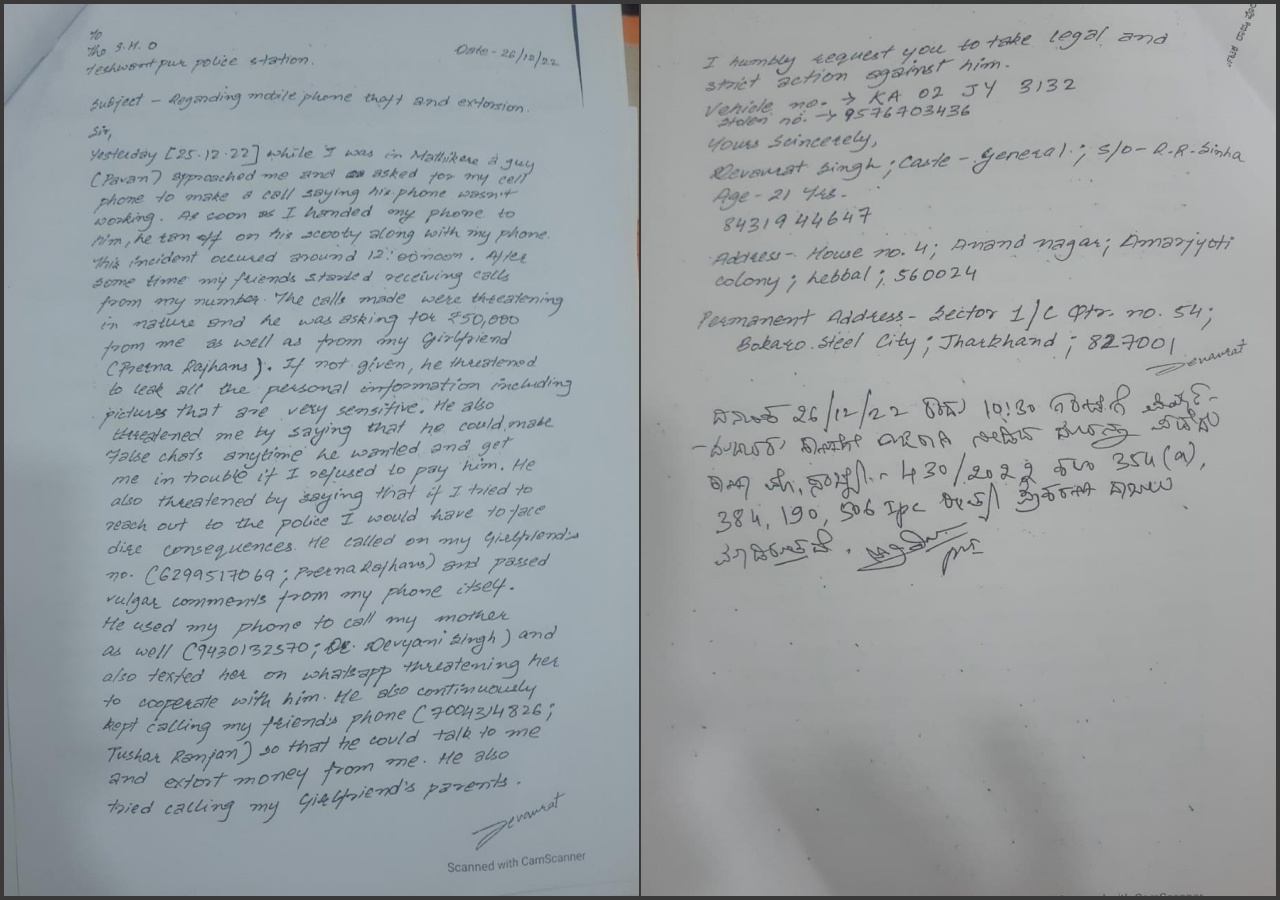 To
The S.H.O
Yeshwantpur police station.
Date - 26/12/22
Subject - Regarding mobile phone theft and extorsion.
Sir,
Yesterday [25.12.22] while I was in Mathikere a guy
(Pavan) approached me and asked for my cell
phone to make a call saying his phone wasn't
working. As soon as I handed my phone to
him, he ran off on his scooty along with my phone.
This incident occured around 12:00noon. After
some time my friends started receiving calls
from my number. The calls made were threatening
in nature and he was asking for ₹50,000
from me as well as from my Girlfriend
(Prerna Rajhans). If not given, he threatened
to leak all the personal information including
pictures that are very sensitive. He also
threatened me by saying that he could make
False chats anytime he wanted and get
me in trouble if I refused to pay him. He
also threatened by saying that if I tried to
reach out to the police I would have to face
dire consequences. He called on my Girlfriend's
no. (6299517069; Prerna Rajhans) and passed
vulgar comments from my phone itself.
He used my phone to call my mother
as well (9430132570; Dr. Devyani Singh) and
also texted her on whatsapp threatening her
to cooperate with him. He also continuously
kept calling my friend's phone (7004314826;
Tushar Ranjan) so that he could talk to me
and extort money from me. He also
tried calling my Girlfriend's parents.
Devavrat
Scanned with CamScanner
I humbly request you to take legal and
strict action against him.
Vehicle no. → KA 02 JY 3132
Stolen no. → 9576703436
Yours Sincerely,
Devavrat Singh; Caste - General; S/O - R.R. Sinha
Age - 21 Yrs.
8431944647
Address - House no. 4; Anand nagar; Amarjyoti
colony; hebbal; 560024
Permanent Address - Sector 1/C Qtr. no. 54;
Bokaro Steel City; Jharkhand; 827001
Devavrat
ದಿನಾಂಕ 26/12/22 ರಂದು 10:30 ಗಂಟೆಗೆ
430/2022 ಕಲಂ 354(a),
384, 190, 506 Ipc